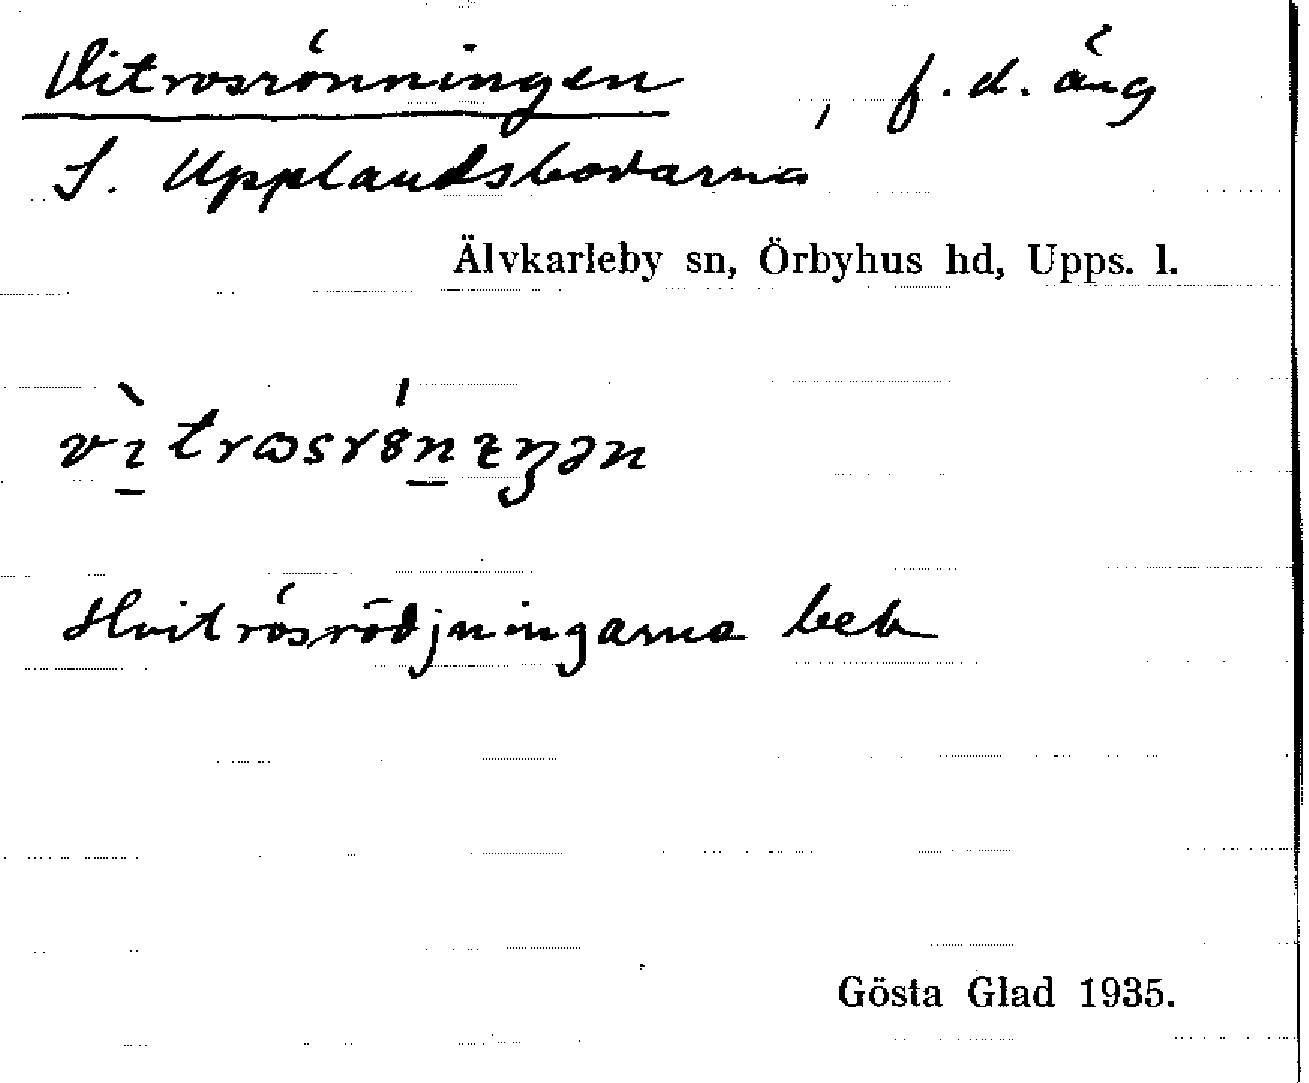 Vitrosrönningen, f. d. äng
S. Upplandsbodarna
Älvkarleby sn, Örbyhus hd, Upps. l.
Hvitrösrödjningarna bek
Gösta Glad 1935.